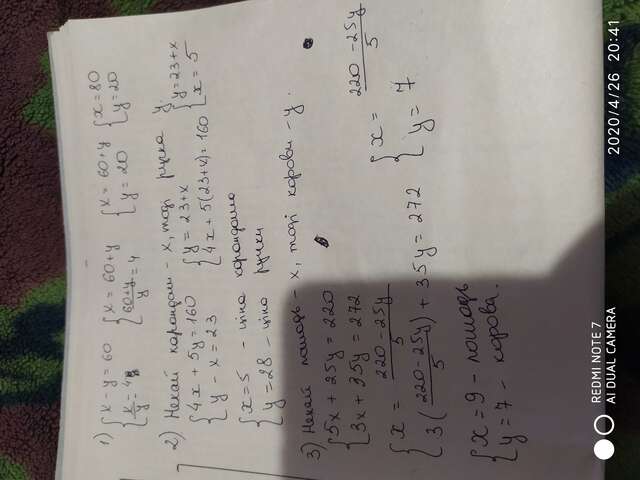 1) { x - y = 60 { x = 60 + y { x = 60 + y { x = 80
{ x/y = 4 { (60+y)/y = 4 { y = 20 { y = 20
2) Нехай карандаш - x, тоді ручка y.
{ 4x + 5y = 160 { y = 23 + x { y = 23 + x
{ y - x = 23 { 4x + 5(23+x) = 160 { x = 5
{ x = 5 - ціна карандаша
{ y = 28 - ціна ручки
3) Нехай лошадь - x, тоді корови - y.
{ 5x + 25y = 220
{ 3x + 35y = 272
{ x = (220 - 25y)/5 { x = (220 - 25y)/5
{ 3((220 - 25y)/5) + 35y = 272 { y = 7
{ x = 9 - лошадь
{ y = 7 - корова.
REDMI NOTE 7
AI DUAL CAMERA
2020/4/26 20:41